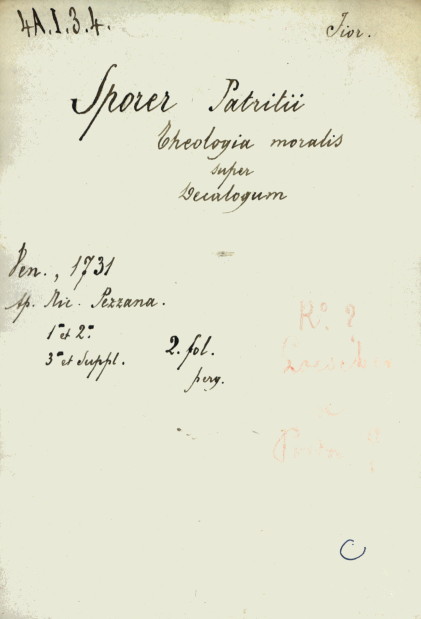 4A.I.3.4.
Fior.
Sporer Patritii
Theologia moralis
super
Decalogum
Ven., 1731
Ap. Nic. Pezzana.
1ª et 2ª
3ª et Suppl.
2. fol.
perg.
C